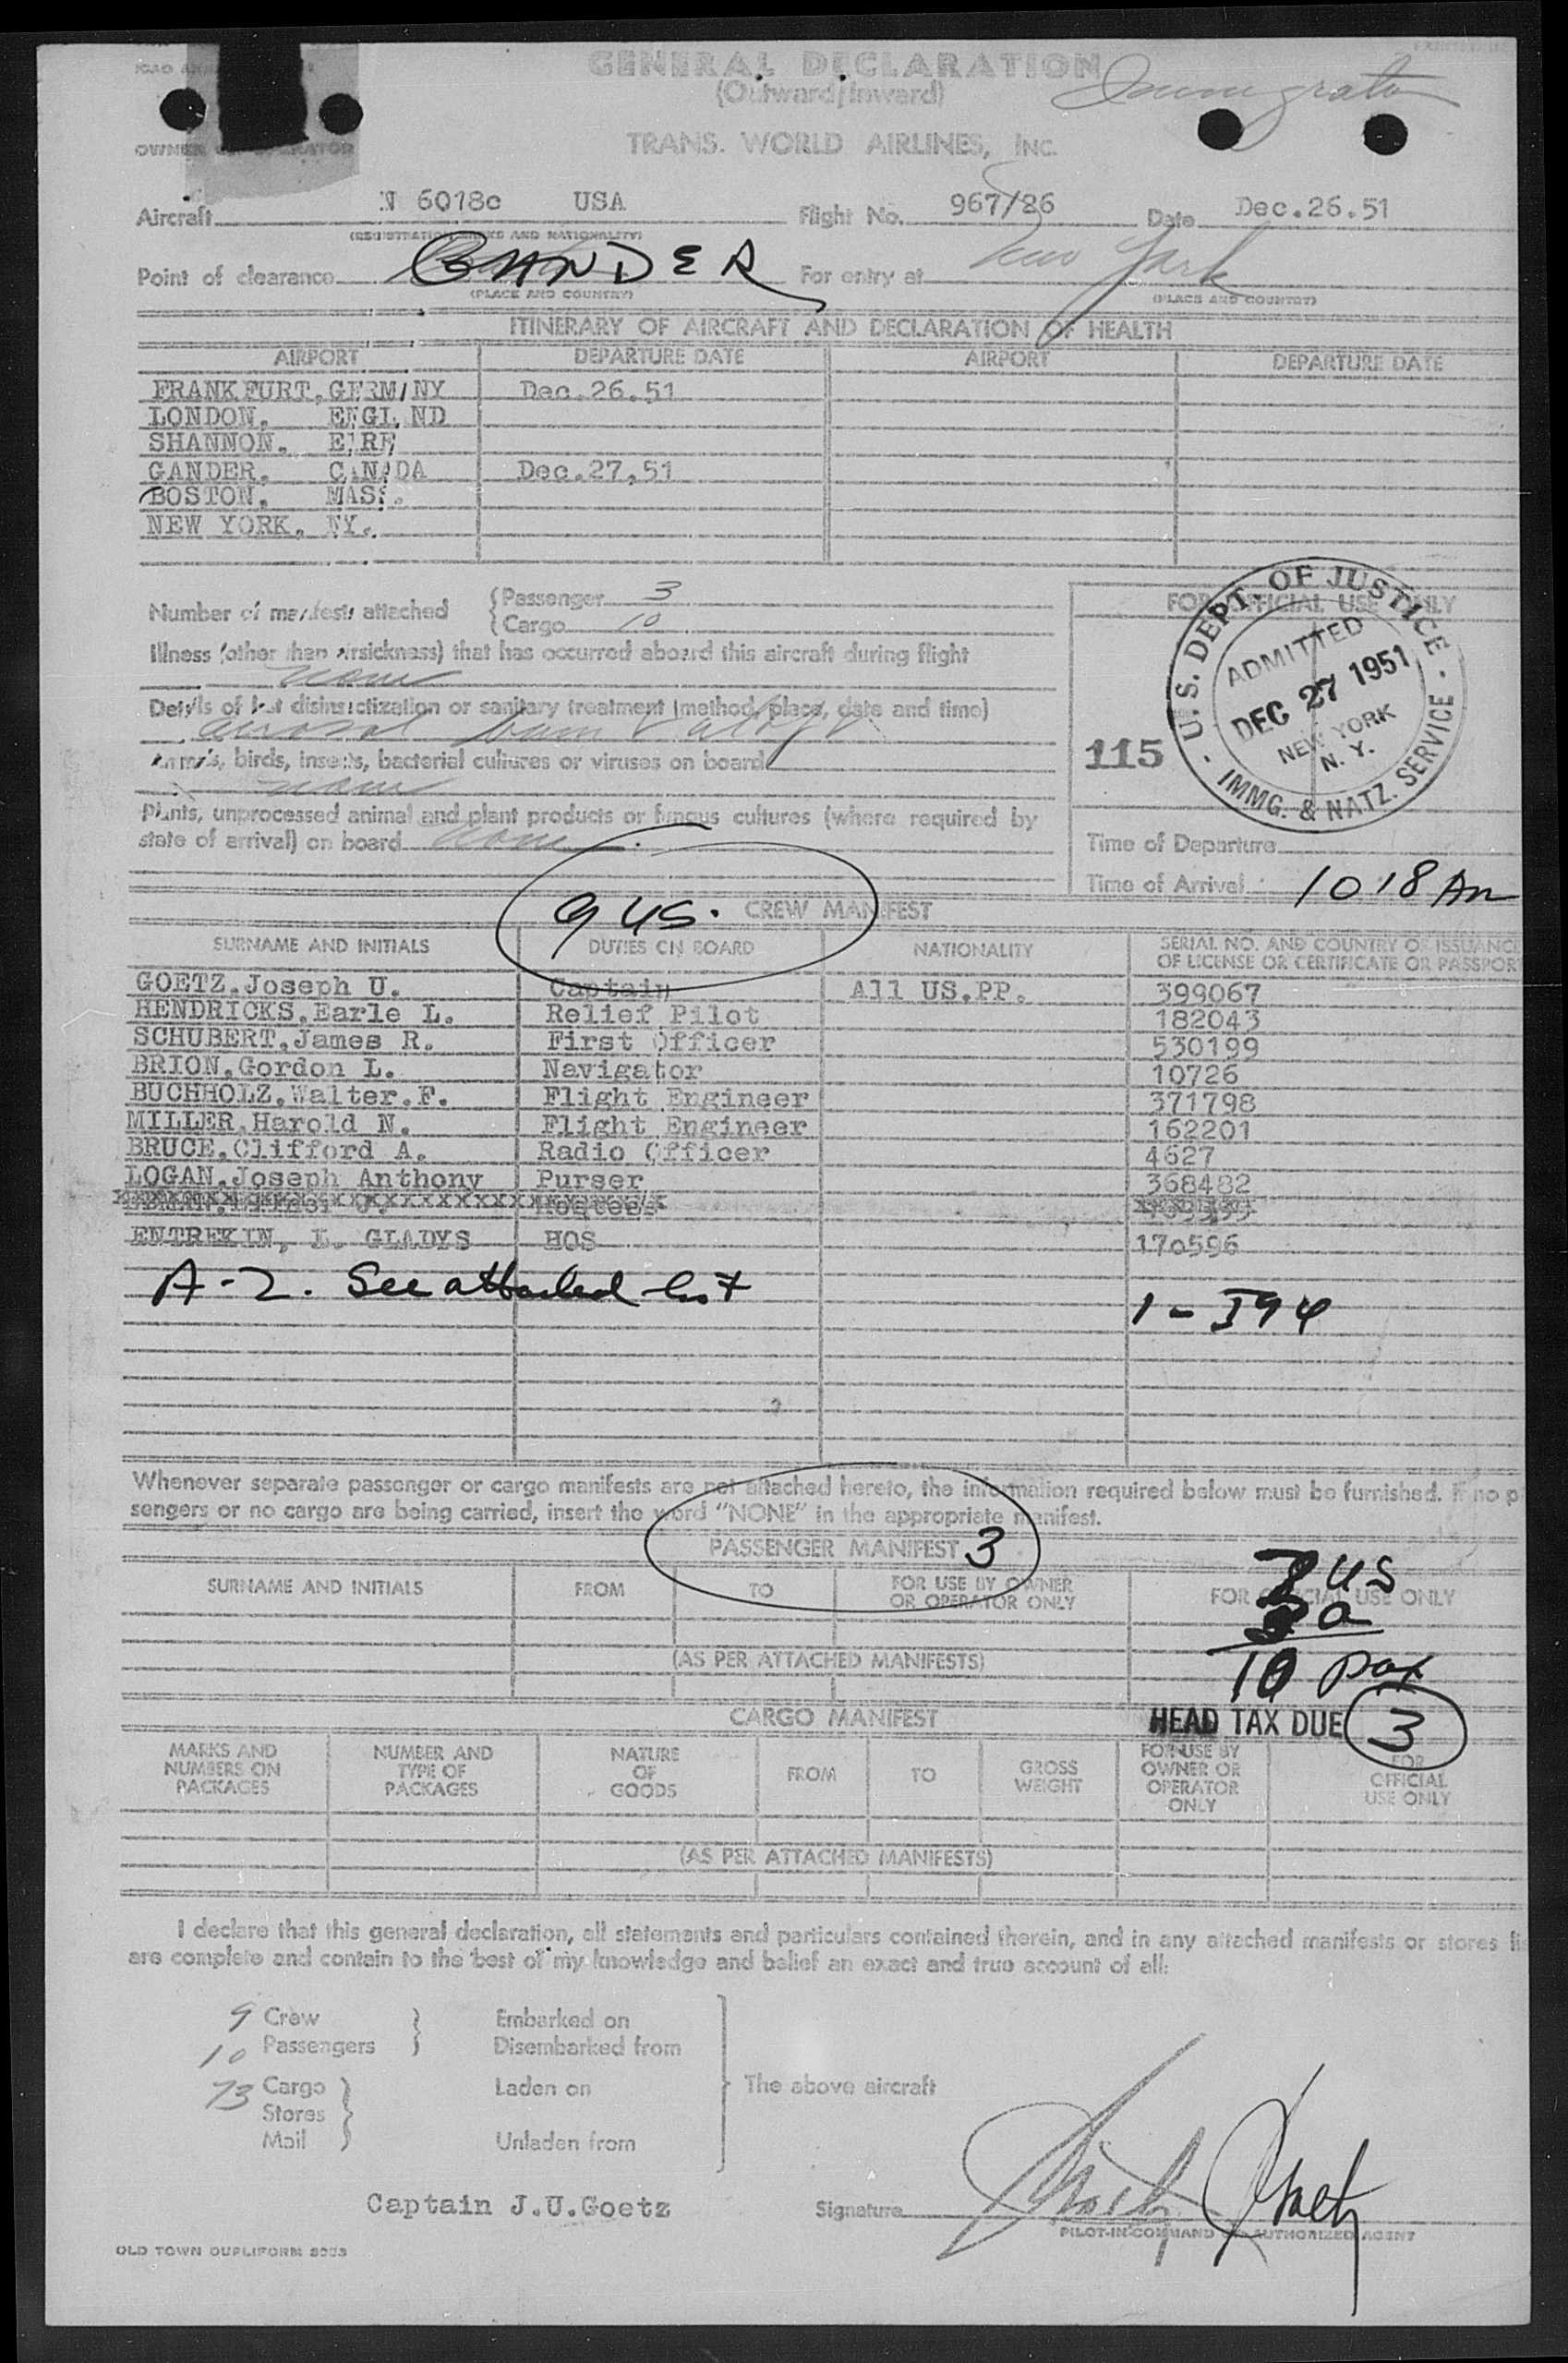 GENERAL DECLARATION
(Outward/Inward)
Immigration
TRANS. WORLD AIRLINES, INC.
Aircraft N 6018c USA Flight No. 967/86 Date Dec.26.51
(REGISTRATION MARKS AND NATIONALITY)
Point of clearance GANDER For entry at New York
(PLACE AND COUNTRY) (PLACE AND COUNTRY)
ITINERARY OF AIRCRAFT AND DECLARATION OF HEALTH
AIRPORT DEPARTURE DATE AIRPORT DEPARTURE DATE
FRANKFURT, GERMANY Dec.26.51
LONDON, ENGLAND
SHANNON, EIRE
GANDER, CANADA Dec.27,51
BOSTON, MASS.
NEW YORK, NY.
Number of manifests attached { Passenger 3
{ Cargo 10
FOR OFFICIAL USE ONLY
Illness (other than airsickness) that has occurred aboard this aircraft during flight
none
Details of last disinsectization or sanitary treatment (method, place, date and time)
aerosol
Animals, birds, insects, bacterial cultures or viruses on board
none
Plants, unprocessed animal and plant products or fungus cultures (where required by
state of arrival) on board none
115
U.S. DEPT. OF JUSTICE
ADMITTED
DEC 27 1951
NEW YORK
N. Y.
IMMG. & NATZ. SERVICE
Time of Departure
Time of Arrival 10 18 Am
9 US. CREW MANIFEST
SURNAME AND INITIALS DUTIES ON BOARD NATIONALITY SERIAL NO. AND COUNTRY OF ISSUANC
OF LICENSE OR CERTIFICATE OR PASSPOR
GOETZ,Joseph U. Captain All US.PP. 399067
HENDRICKS,Earle L. Relief Pilot 182043
SCHUBERT,James R. First Officer 530199
BRION,Gordon L. Navigator 10726
BUCHHOLZ,Walter.F. Flight Engineer 371798
MILLER,Harold N. Flight Engineer 162201
BRUCE,Clifford A. Radio Officer 4627
LOGAN,Joseph Anthony Purser 368482
Hostess
ENTREKIN, L. GLADYS HOS 170596
A-2. See attached list 1 - I94
Whenever separate passenger or cargo manifests are not attached hereto, the information required below must be furnished. If no p
sengers or no cargo are being carried, insert the word "NONE" in the appropriate manifest.
PASSENGER MANIFEST 3
SURNAME AND INITIALS FROM TO FOR USE BY OWNER
OR OPERATOR ONLY FOR OFFICIAL USE ONLY
7 US
3 a
10 pax
(AS PER ATTACHED MANIFESTS)
CARGO MANIFEST
HEAD TAX DUE 3
MARKS AND
NUMBERS ON
PACKAGES
NUMBER AND
TYPE OF
PACKAGES
NATURE
OF
GOODS
FROM
TO
GROSS
WEIGHT
FOR USE BY
OWNER OR
OPERATOR
ONLY
FOR
OFFICIAL
USE ONLY
(AS PER ATTACHED MANIFESTS)
I declare that this general declaration, all statements and particulars contained therein, and in any attached manifests or stores lis
are complete and contain to the best of my knowledge and belief an exact and true account of all:
9 Crew Embarked on
10 Passengers Disembarked from
73 Cargo Laden on The above aircraft
Stores
Mail Unladen from
Captain J.U.Goetz Signature Goetz
PILOT-IN-COMMAND OR AUTHORIZED AGENT
OLD TOWN DUPLIFORM